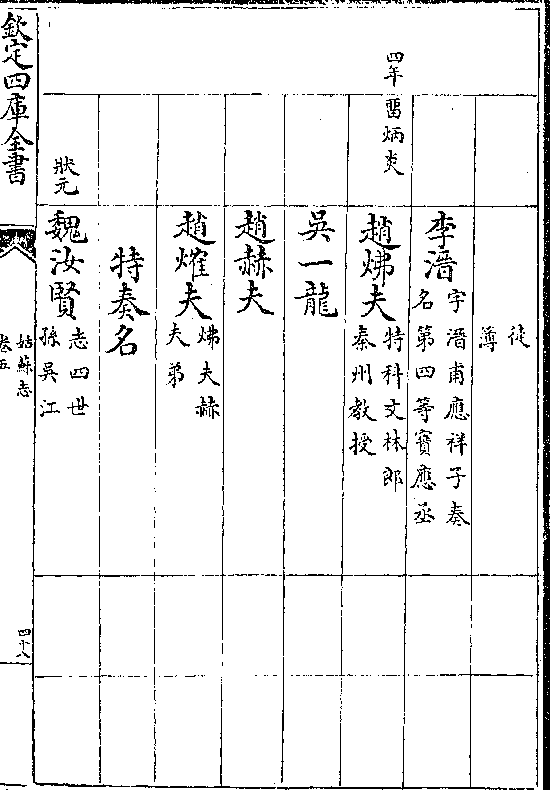 徒
簿
李溍
字溍甫應祥子奏
名第四等寳應丞
四年 畱炳炎
趙炥夫
特科文林郎
秦州教授
吳一龍
趙赫夫
趙夫
炥夫赫
夫弟
特奏名
狀元
魏汝賢
志四世
孫吳江
欽定四庫全書
姑蘇志
卷五
四十八